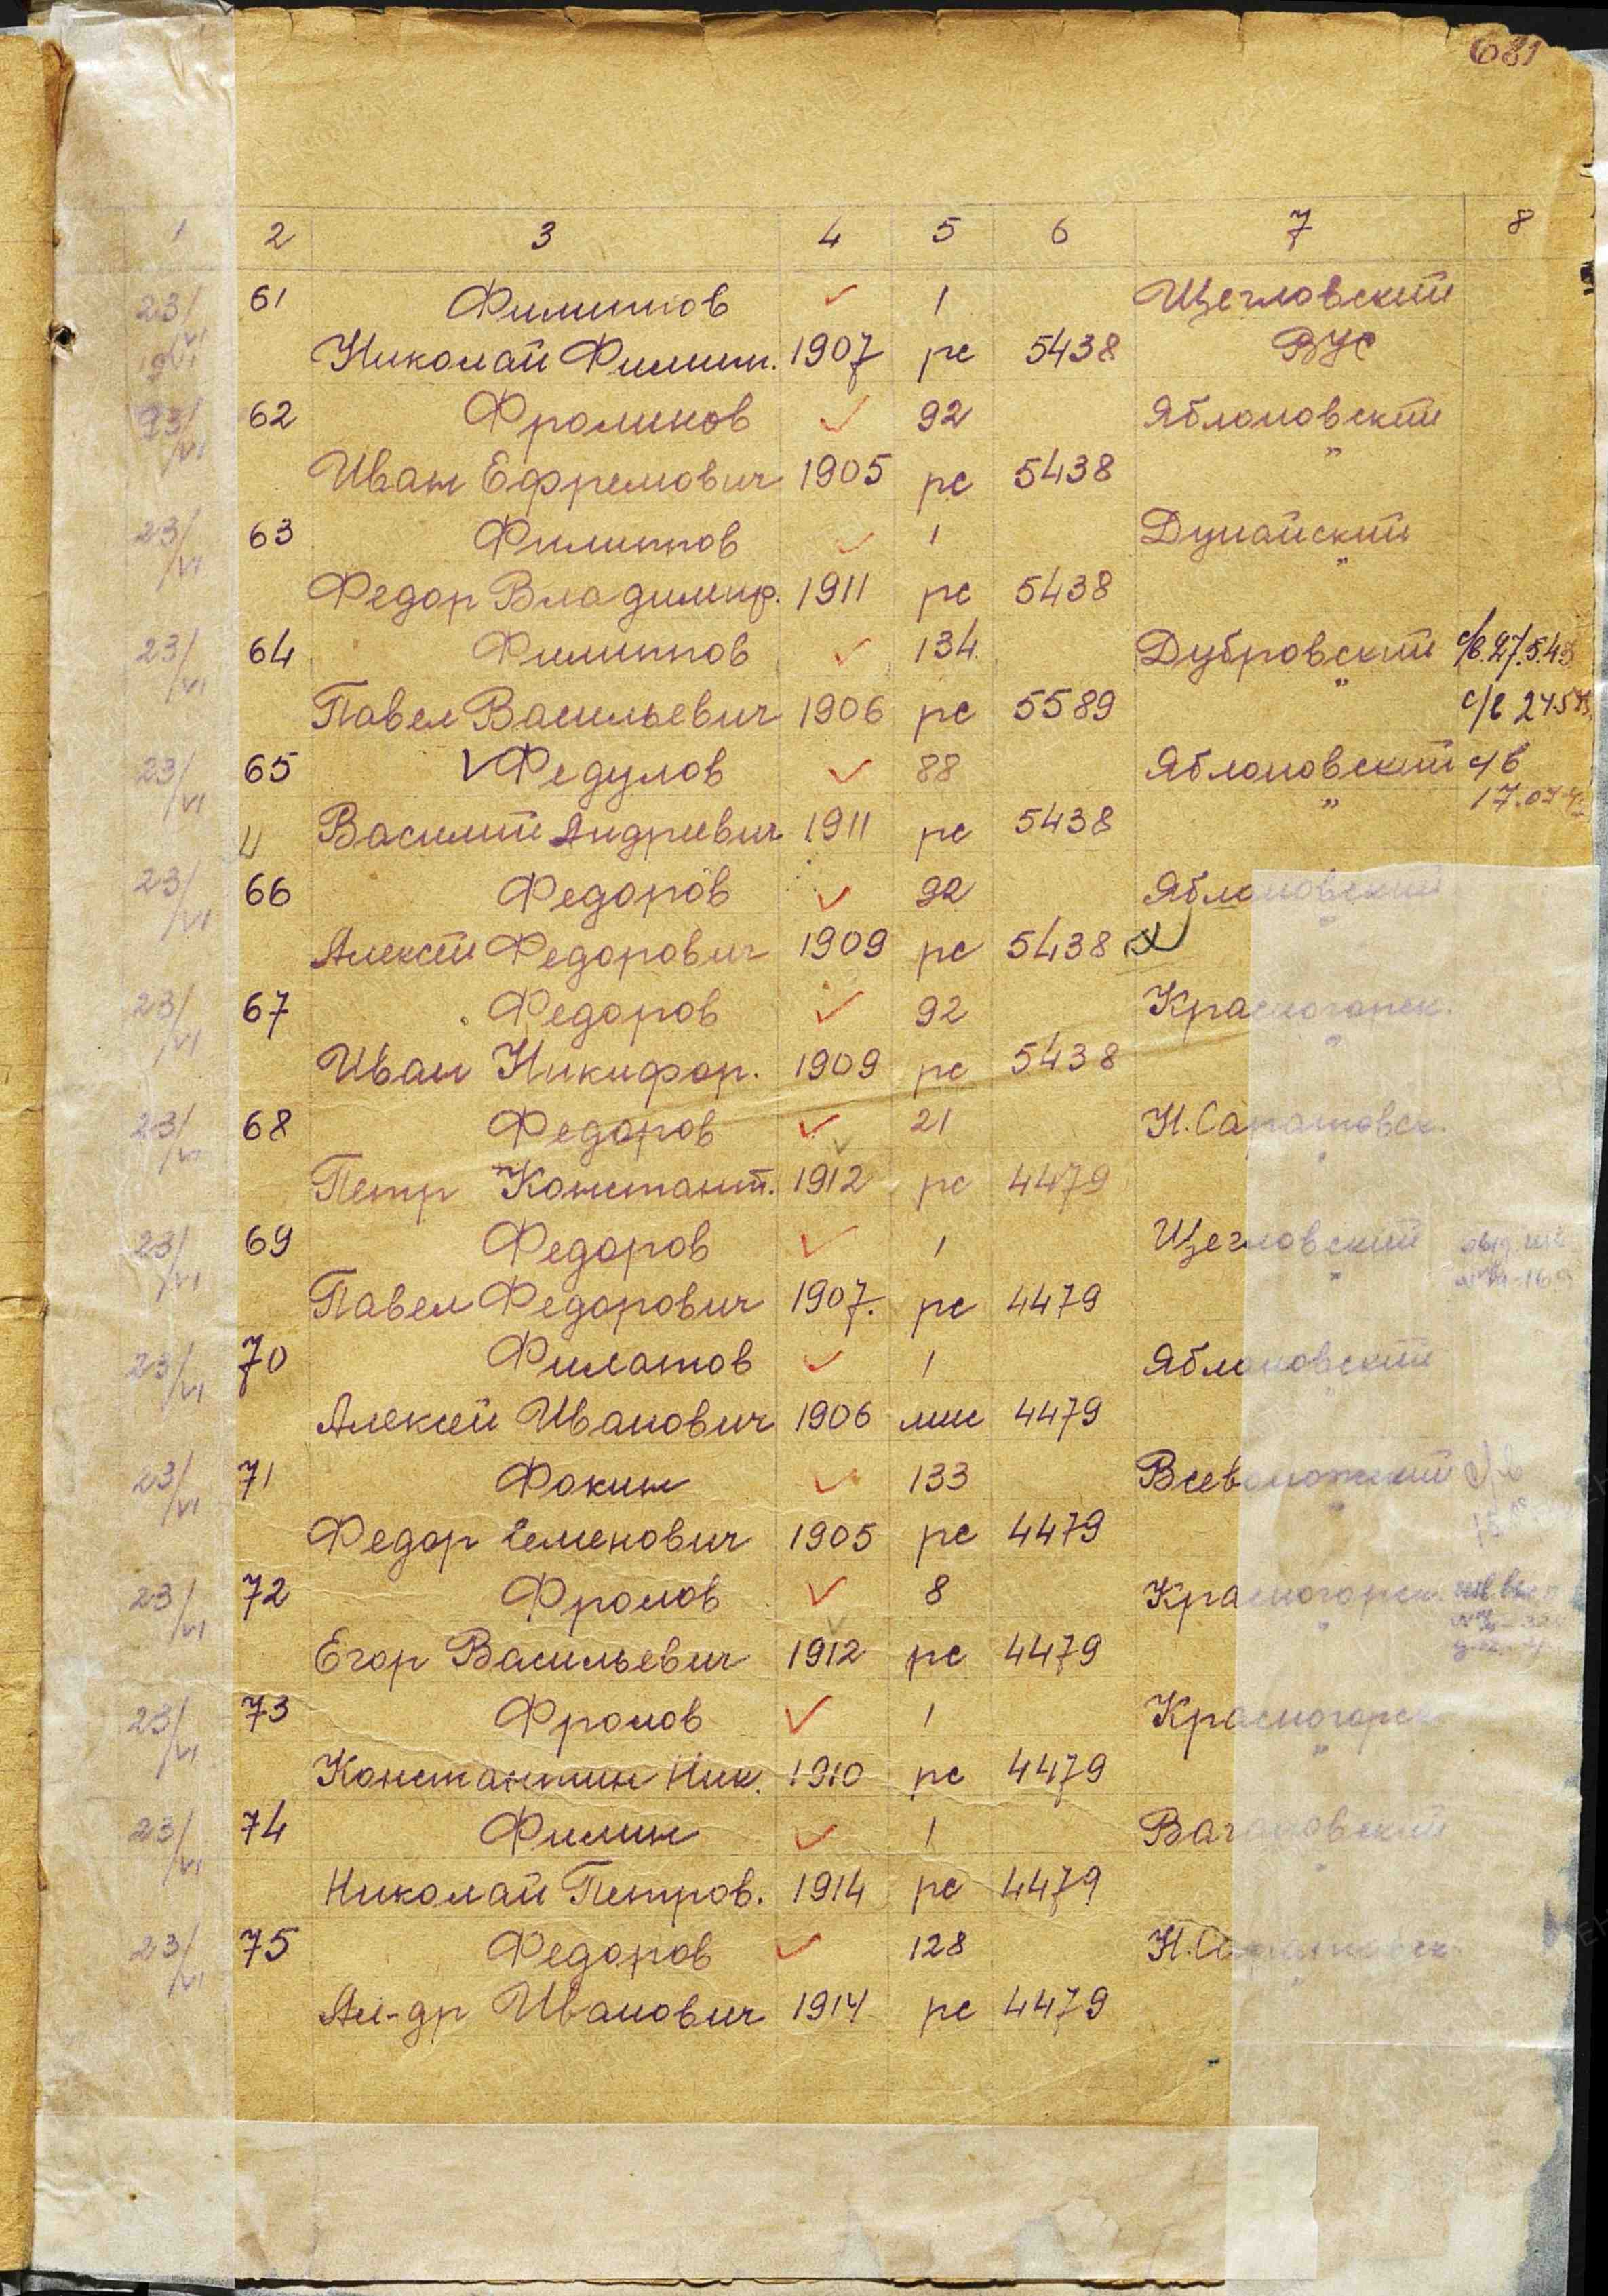 681
1 2 3 4 5 6 7 8
23/VI 61 Филиппов 1 Щегловский
1941 Николай Филип. 1907 рс 5438 ВУС
23/VI 62 Фролинов 92 Яблоновский
Иван Ефремович 1905 рс 5438 "
23/VI 63 Филиппов 1 Дунайский
Федор Владимир. 1911 рс 5438 "
23/VI 64 Филиппов 134 Дубровский с/в.27.5.43
Павел Васильевич 1906 рс 5589 " с/в
23/VI 65 Федулов 88 Яблоновский с/в
Василий Андреевич 1911 рс 5438 "
23/VI 66 Федоров 92 Яблоновский
Алексей Федорович 1909 рс 5438 "
23/VI 67 Федоров 92 Красногорск.
Иван Никифор. 1909 рс 5438 "
23/VI 68 Федоров 21 Н.Саратовск.
Петр Констант. 1912 рс 4479 "
23/VI 69 Федоров 1 Щегловский
Павел Федорович 1907. рс 4479 "
23/VI 70 Филатов 1 Яблоновский
Алексей Иванович 1906 млс 4479 "
23/VI 71 Фокин 133 Всеволожский
Федор Семенович 1905 рс 4479 "
23/VI 72 Фролов 8 Красногорск.
Егор Васильевич 1912 рс 4479 "
23/VI 73 Фролов 1 Красногорск
Константин Ник. 1910 рс 4479 "
23/VI 74 Филин 1 Вагановский
Николай Петров. 1914 рс 4479 "
23/VI 75 Федоров 128 Н.Саратовск.
Ал-др Иванович 1914 рс 4479 "